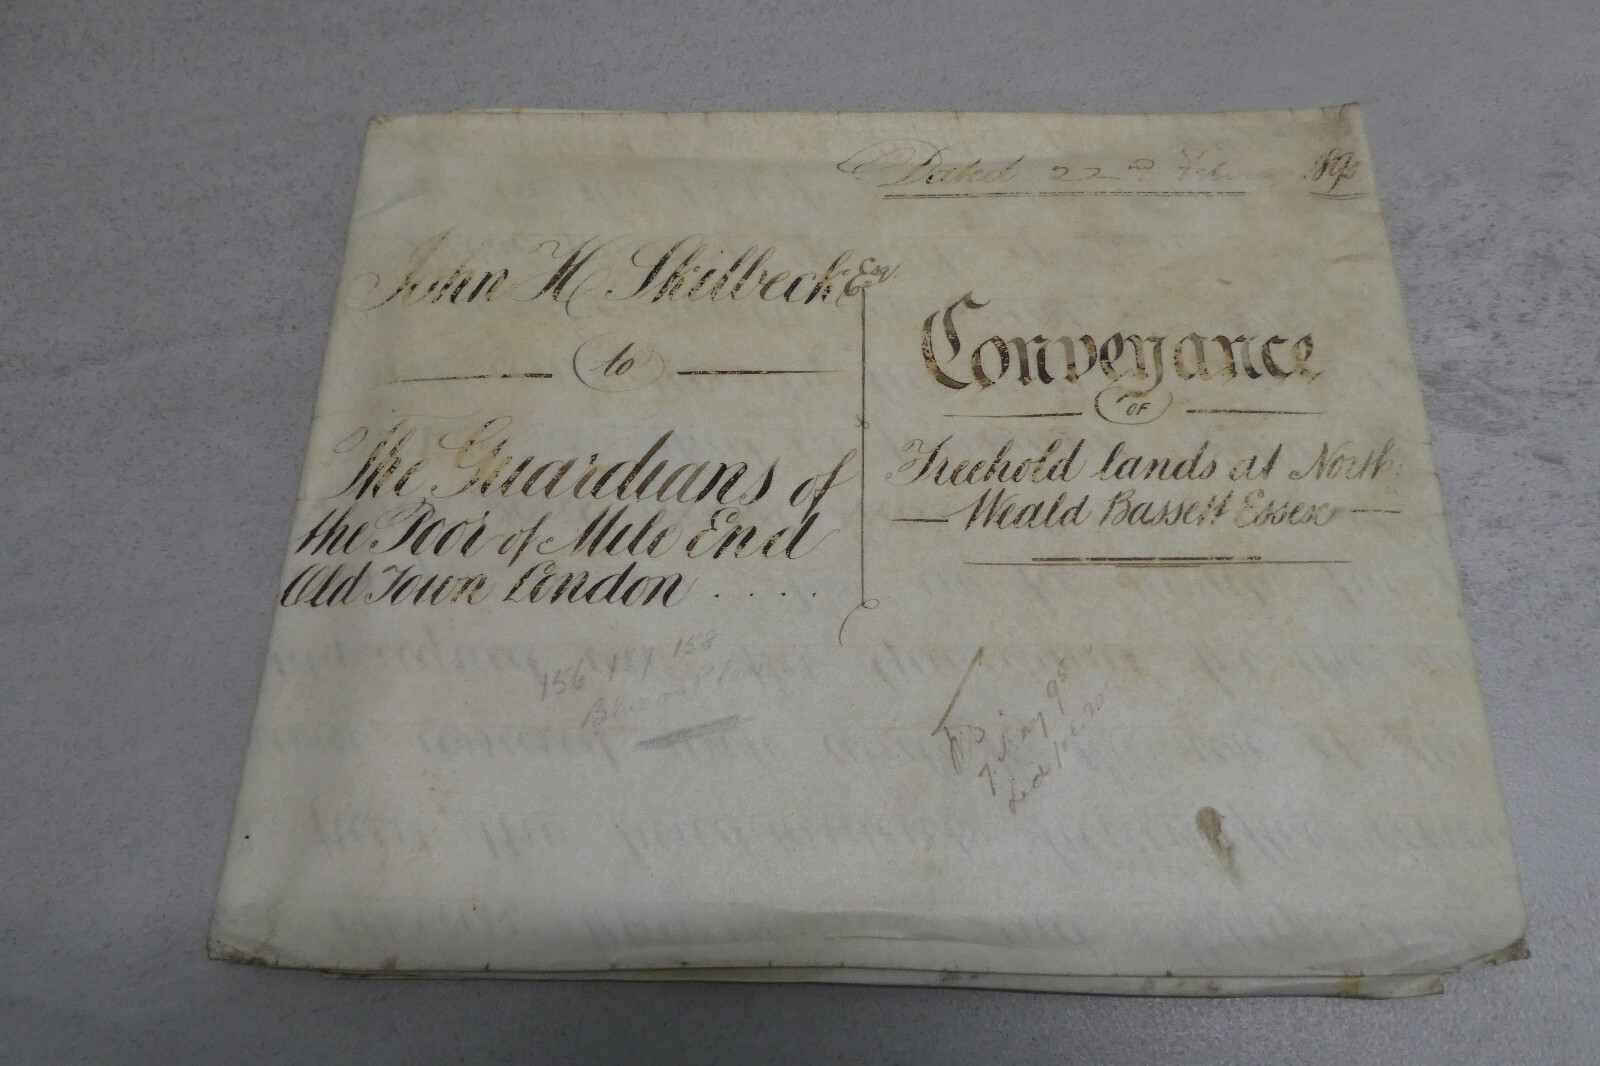 Dated 22nd February
John H Skilbeck Esqr.
to
The Guardians of
the Poor of Mile End
Old Town London . . . .
Conveyance
OF
Freehold lands at North
Weald Bassett Essex
156 157 158